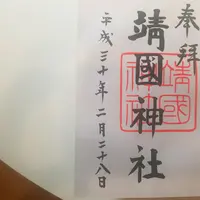 奉拝
靖國神社
靖國
神社
平成三十年二月二十八日